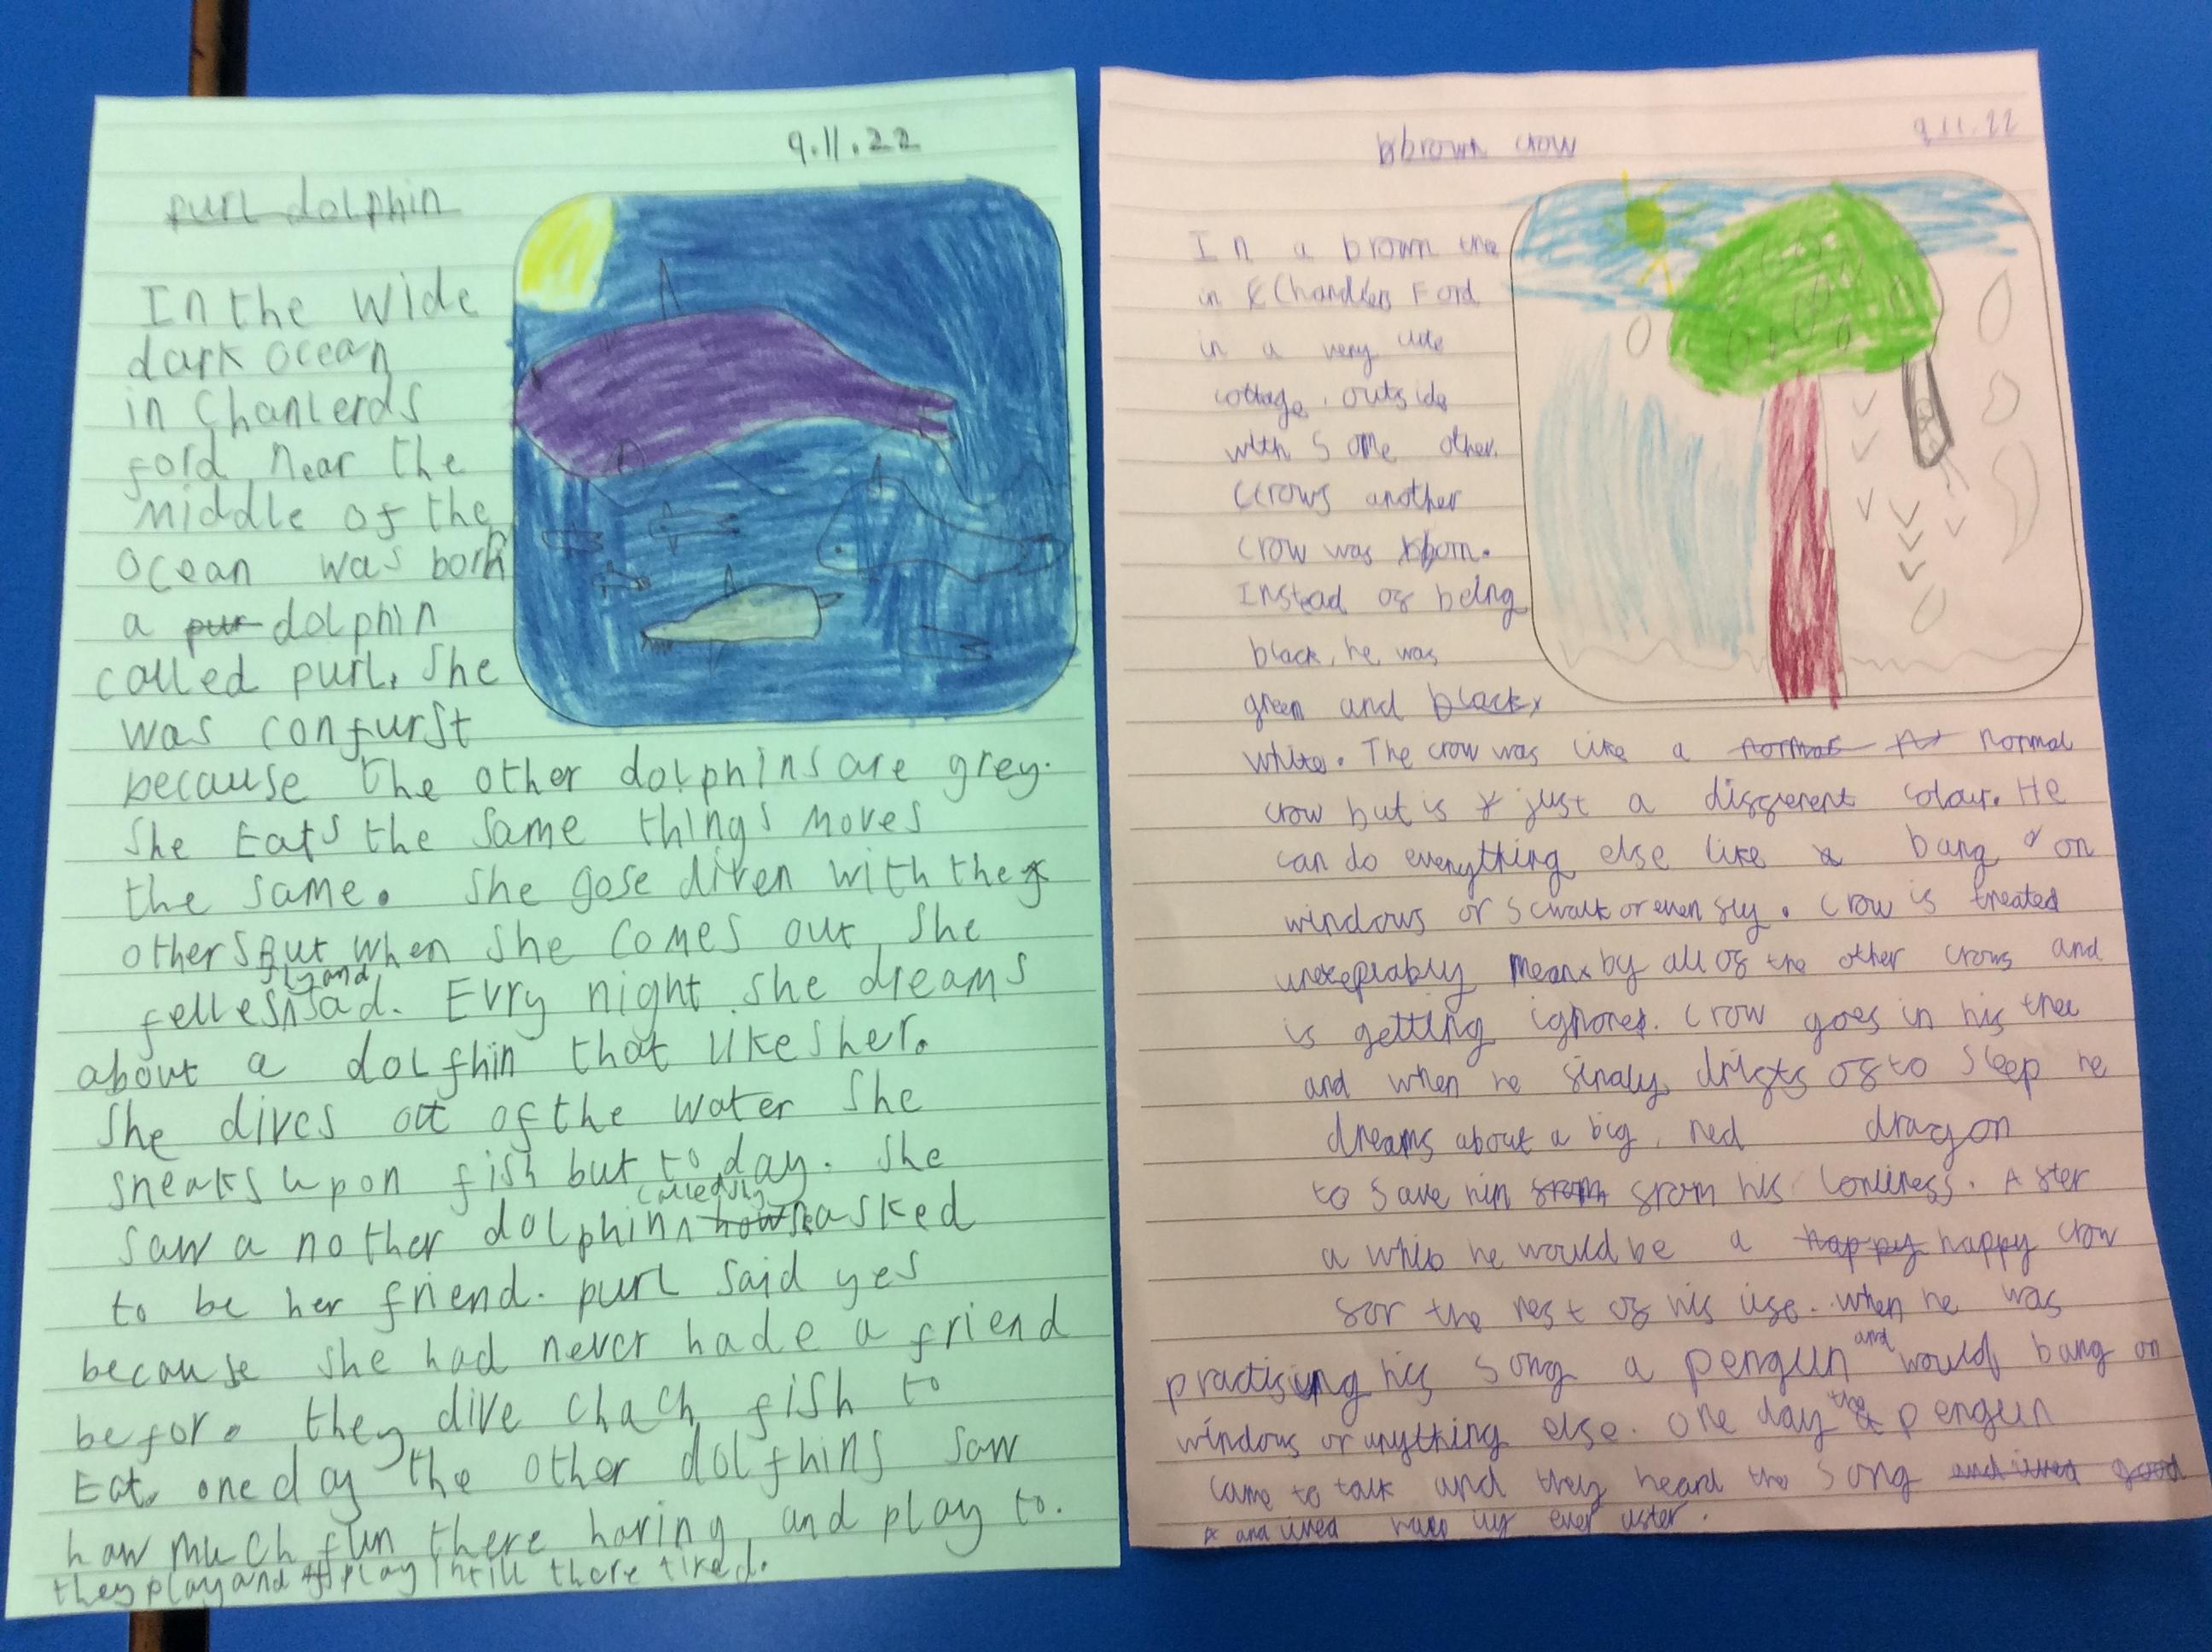 9.11.22
purl dolphin
In the wide
dark ocean
in Chanlerds
ford near the
middle of the
ocean was born
a pur dolphin
called purl. She
was confurst
because the other dolphins are grey.
She Eats the same things moves
the same. She gose diven with the
others But when she comes out she
felles sly and sad. Evry night she dreams
about a dolfhin that likes her.
She dives out of the water she
sneaks upon fish but to day. She
saw a nother dolphin called sky how asked
to be her friend. purl said yes
because she had never hade a friend
before they dive chach fish to
Eat. one day the other dolfhins saw
how much fun there having and play to.
they play and play intill there tired.
9.11.22
brown crow
In a brown tree
in Chandlers Ford
in a very cute
cottage, outside
with some other
crows another
crow was born.
Instead of being
black, he was
green and black
white. The crow was like a normal normal
crow but is just a diffrent colour. He
can do everything else like bang on
windows or scwalk or even fly. Crow is treated
unexepiably mean by all of the other crows and
is getting ignored. Crow goes in his tree
and when he finaly drifts of to sleep he
dreams about a big, red dragon
to save him from from his lonliness. After
a while he would be a happy happy crow
for the rest of his life. when he was
practising his song a penguin and would bang on
windows or anything else. One day the penguin
came to talk and they heard the song and lived good
and lived happily ever after.